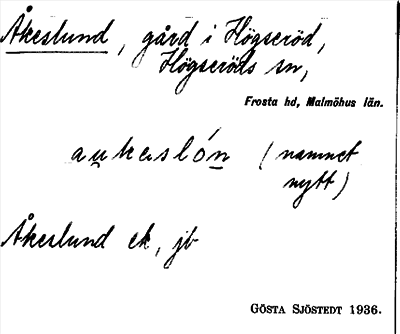 Åkeslund, gård i Högseröd,
Högseröds sn,
Frosta hd, Malmöhus län.
aukeslón (namnet
nytt)
Åkeslund ek, jb
GÖSTA SJÖSTEDT 1936.